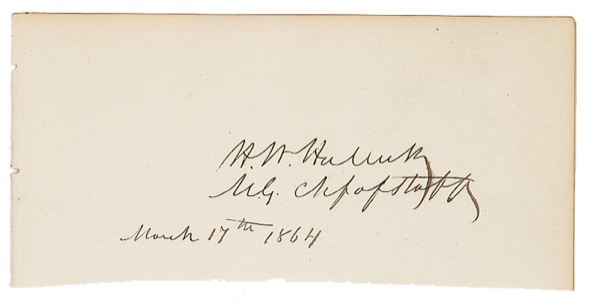 H. W. Halleck
M. G. Chf of Staff
March 17th 1864